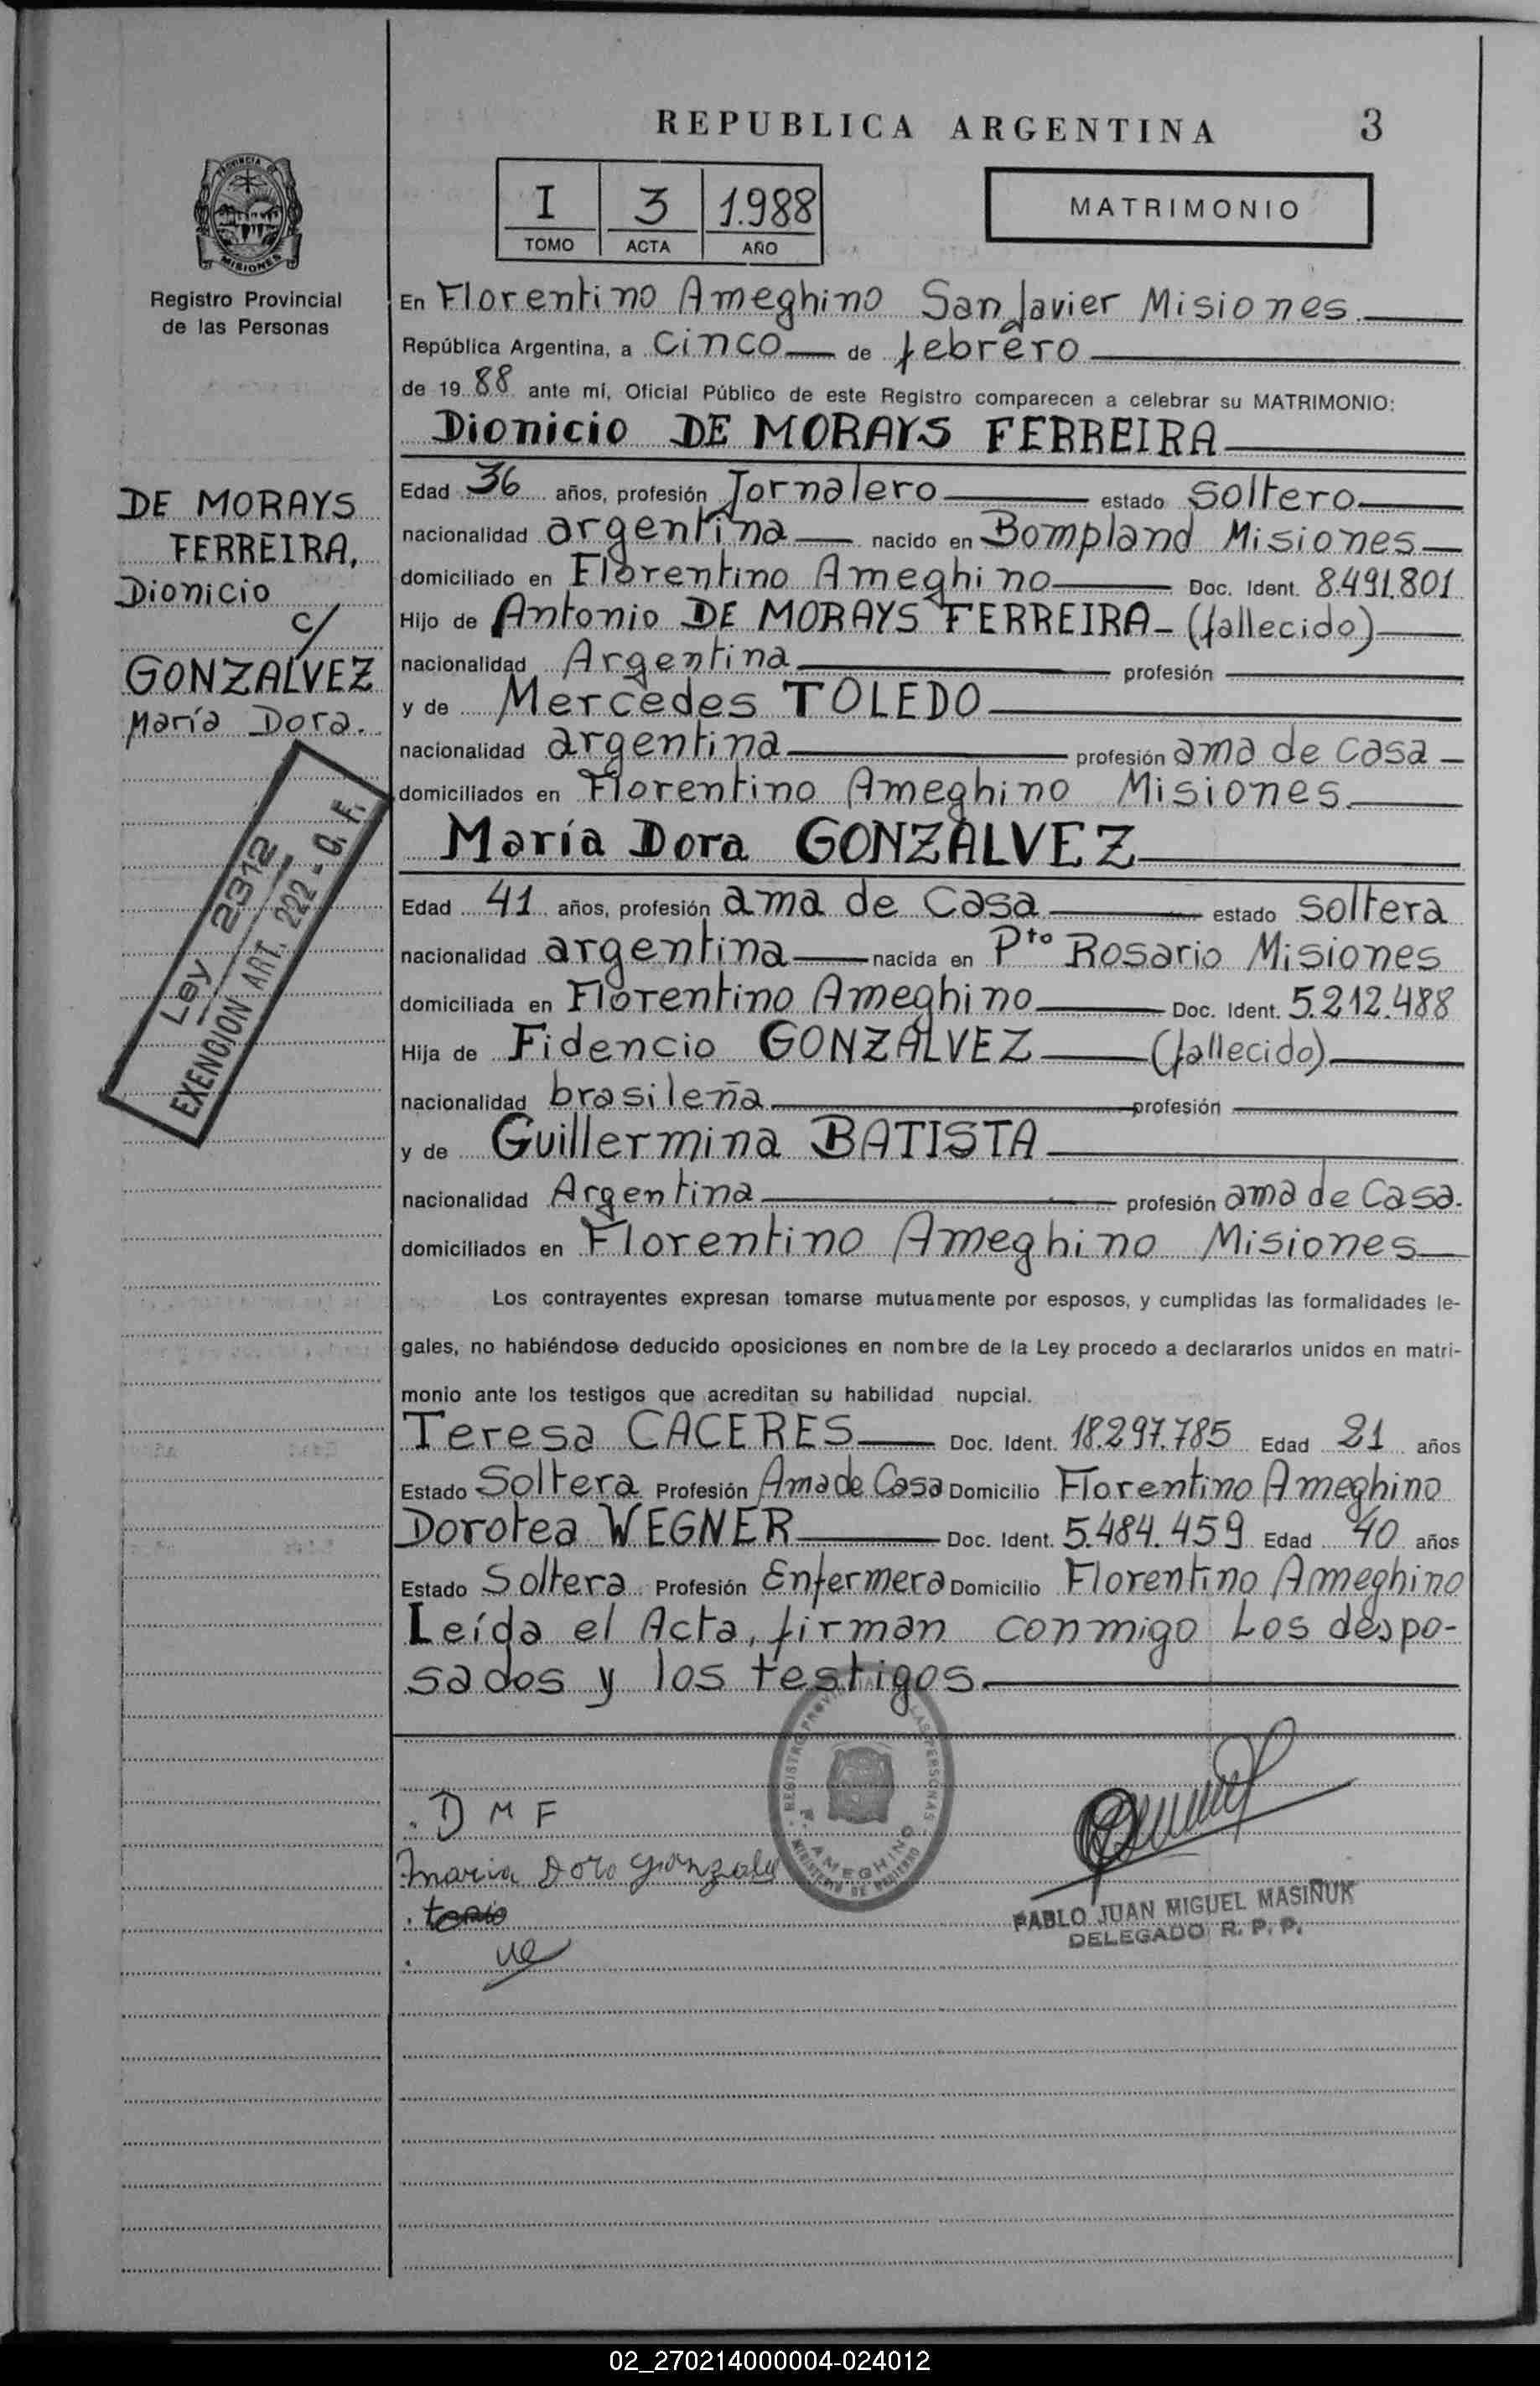 REPUBLICA ARGENTINA 3
PROVINCIA DE
MISIONES
Registro Provincial
de las Personas
I 3 1.988
TOMO ACTA AÑO
MATRIMONIO
En Florentino Ameghino San Javier Misiones
República Argentina, a cinco de febrero
de 19 88 ante mí, Oficial Público de este Registro comparecen a celebrar su MATRIMONIO:
Dionicio DE MORAYS FERREIRA
Edad 36 años, profesión Jornalero estado soltero
nacionalidad argentina nacido en Bompland Misiones
domiciliado en Florentino Ameghino Doc. Ident. 8.491.801
Hijo de Antonio DE MORAYS FERREIRA - (fallecido)
nacionalidad Argentina profesión
y de Mercedes TOLEDO
nacionalidad argentina profesión ama de casa
domiciliados en Florentino Ameghino Misiones
María Dora GONZALVEZ
Edad 41 años, profesión ama de Casa estado soltera
nacionalidad argentina nacida en Pto Rosario Misiones
domiciliada en Florentino Ameghino Doc. Ident. 5.212.488
Hija de Fidencio GONZALVEZ (fallecido)
nacionalidad brasileña profesión
y de Guillermina BATISTA
nacionalidad Argentina profesión ama de Casa.
domiciliados en Florentino Ameghino Misiones
Los contrayentes expresan tomarse mutuamente por esposos, y cumplidas las formalidades le-
gales, no habiéndose deducido oposiciones en nombre de la Ley procedo a declararlos unidos en matri-
monio ante los testigos que acreditan su habilidad nupcial.
Teresa CACERES Doc. Ident. 18.297.785 Edad 21 años
Estado Soltera Profesión Ama de Casa Domicilio Florentino Ameghino
Dorotea WEGNER Doc. Ident. 5.484.459 Edad 40 años
Estado Soltera Profesión Enfermera Domicilio Florentino Ameghino
Leída el Acta, firman conmigo Los despo-
sados y los testigos
DE MORAYS
FERREIRA,
Dionicio
c/
GONZALVEZ
María Dora.
Ley 2312
EXENCION ART. 222 - Q. F.
REGISTRO PROVINCIAL DE LAS PERSONAS
AMEGHINO
MINISTERIO DE GOBIERNO
D M F
maria Dora gonzale
PABLO JUAN MIGUEL MASIÑUK
DELEGADO R. P. P.
02_270214000004-024012